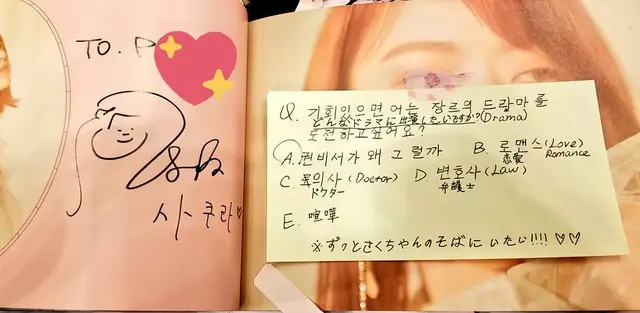 TO. P
사쿠라♡
Q. 기회있으면 어든 장르의 드람마를
どんなドラマに出演したいですか?(Drama)
도전하고싶어요?
A. 퀸비서가 왜 그럴까 B. 로맨스(Love)
恋愛 Romance
C. 목의사 (Doctor) D. 변호사 (Law)
ドクター 弁護士
E. 喧嘩
※ずっとさくちゃんのそばにいたい!!!! ♡♡